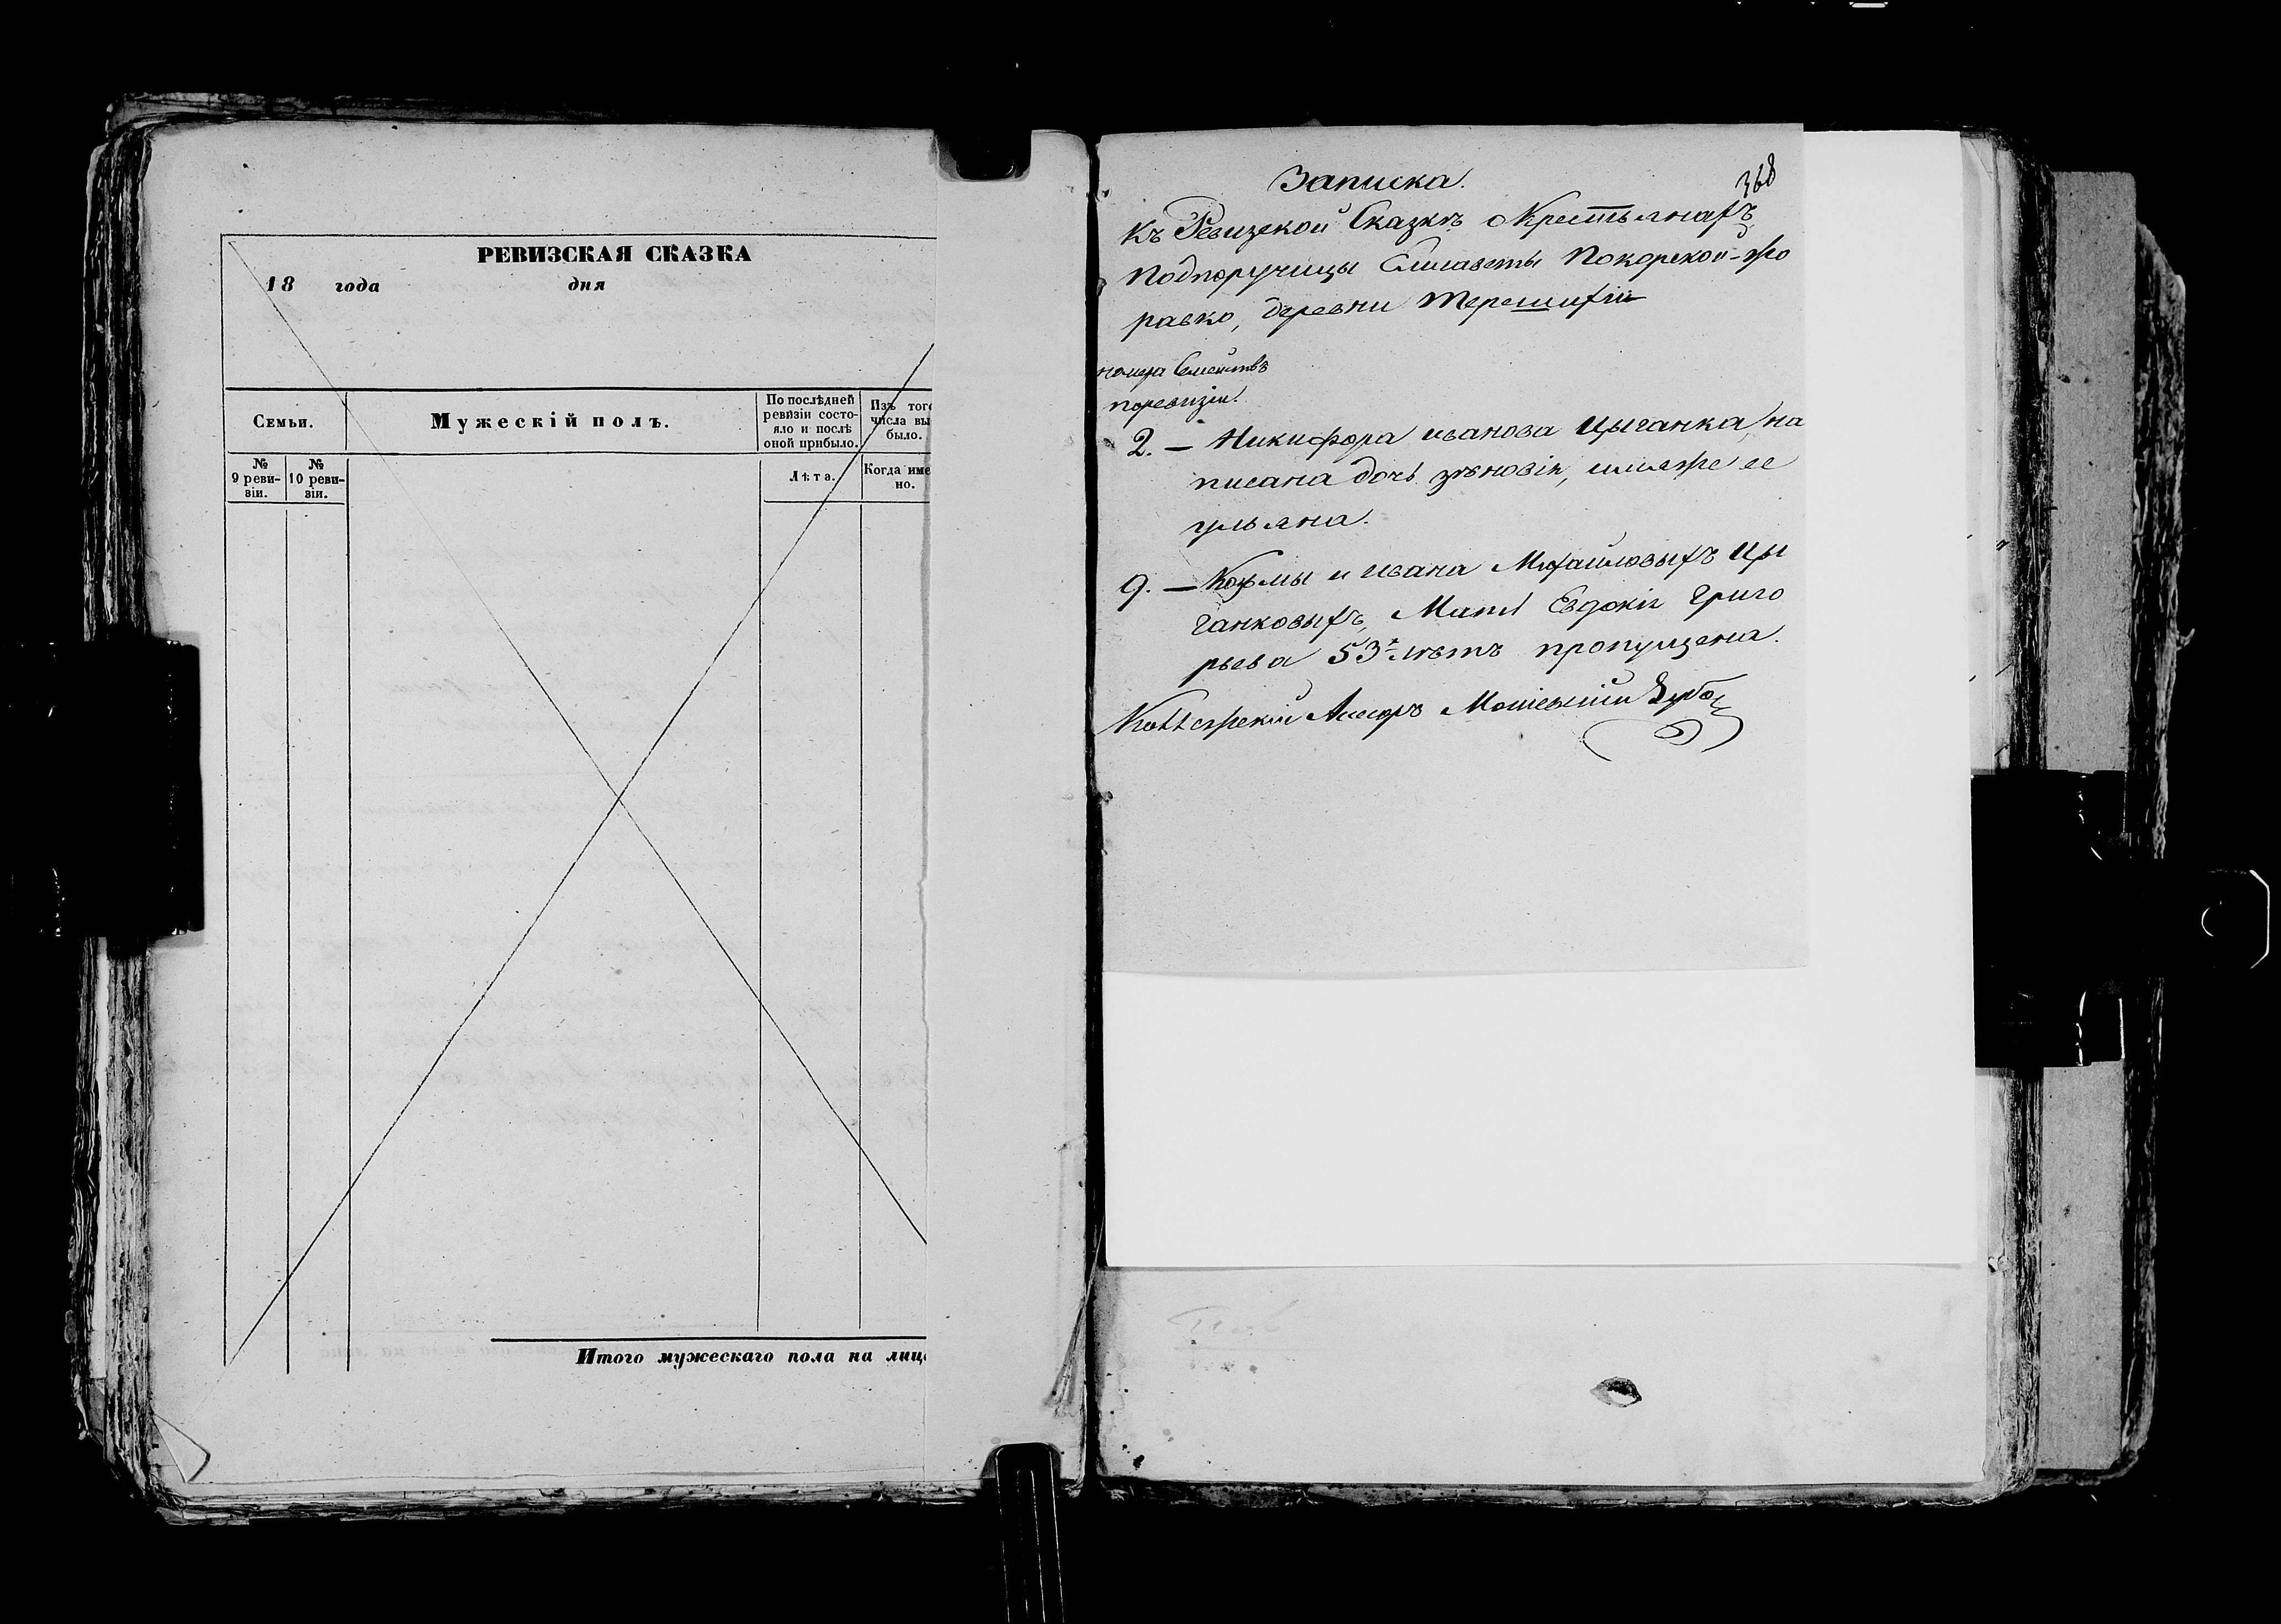 РЕВИЗСКАЯ СКАЗКА
18 года дня
Семьи.
Мужескій полъ.
По послѣдней
ревизіи состо-
яло и послѣ
оной прибыло.
Изъ того
числа вы
было.
№
9 реви-
зіи.
№
10 реви-
зіи.
Лѣта.
Когда име
но.
Итого мужескаго пола на лиц
368
Записка.
Къ Ревизской Сказкѣ о Крестьянахъ
Подпоручицы Елисаветы Покорской-Жо
равко, деревни
номера Семействъ
поревизіи.
2. – Никифора иванова Цыганка, на
писана дочь зѣновія, имя же ее
ульяна.
9. – Козмы и ивана Михайловыхъ Цы
ганковыхъ, Мать Евдокія Григо
рьева 53 лѣтъ пропущена.